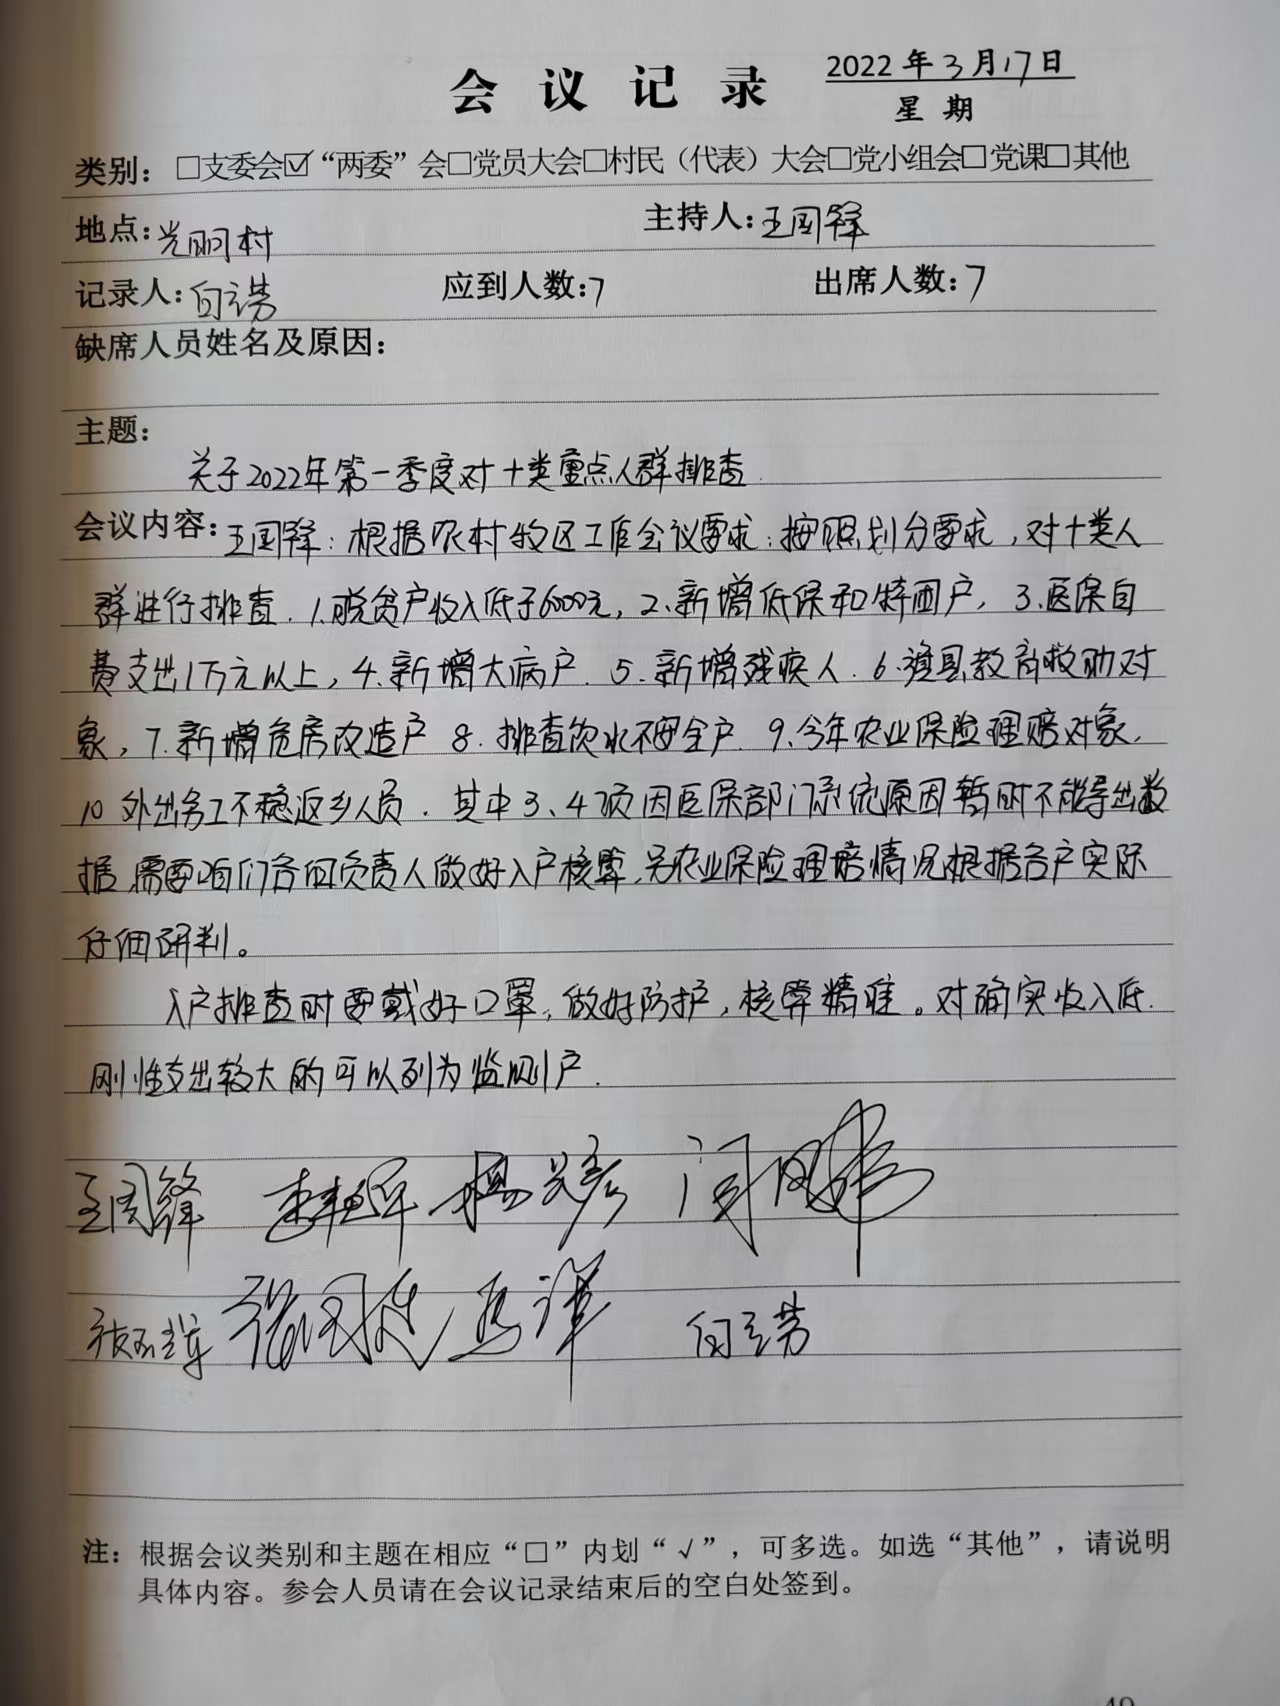 会议记录
2022年3月17日
星期
类别：□支委会☑“两委”会□党员大会□村民（代表）大会□党小组会□党课□其他
地点：光明村 主持人：王国锋
记录人：白云芳 应到人数：7 出席人数：7
缺席人员姓名及原因：
主题：
关于2022年第一季度对十类重点人群排查.
会议内容：王国锋：根据农村牧区工作会议要求：按照划分要求，对十类人
群进行排查.1.脱贫户收入低于6000元，2.新增低保和特困户，3.医保自
费支出1万元以上，4.新增大病户.5.新增残疾人.6.旗县教育救助对
象，7.新增危房改造户 8.排查饮水不安全户.9.今年农业保险理赔对象，
10 外出务工不稳返乡人员.其中3、4项因医保部门系统原因暂时不能导出数
据，需要咱们各组负责人做好入户核算，另农业保险理赔情况根据各户实际
仔细研判。
入户排查时要戴好口罩，做好防护，核算精准。对确实收入低.
刚性支出较大的可以列为监测户.
王国锋
白云芳
注：根据会议类别和主题在相应“□”内划“√”，可多选。如选“其他”，请说明
具体内容。参会人员请在会议记录结束后的空白处签到。